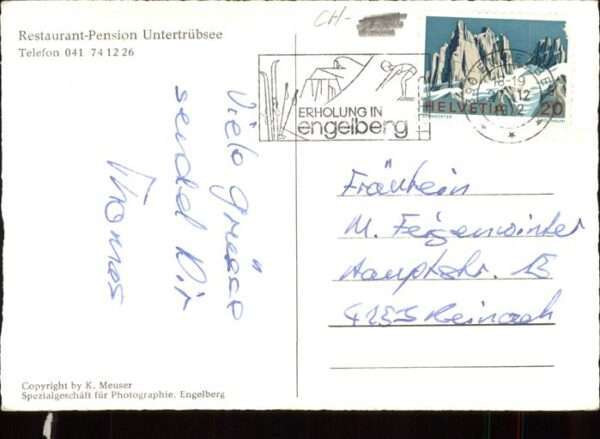 Restaurant-Pension Untertrübsee
Telefon 041 74 12 26
CH-
ERHOLUNG IN
engelberg
HELVETIA
20
Viele grüsse
sendet Dir
Thomas
Fräulein
M. Feigenwinter
Hauptstr.
4153 Reinach
Copyright by K. Meuser
Spezialgeschäft für Photographie, Engelberg